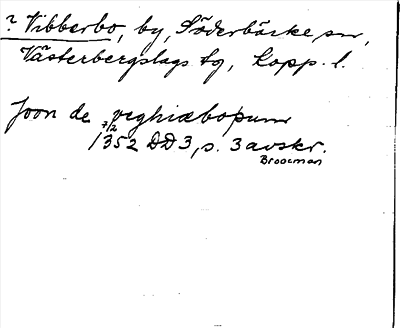 ? Vibberbo, by, Söderbärke sn,
Västerbergslags tg, Kopp. l.
Joon de veghiæboþum
7/2 1352 DD 3, s. 3 avskr.
Broocman